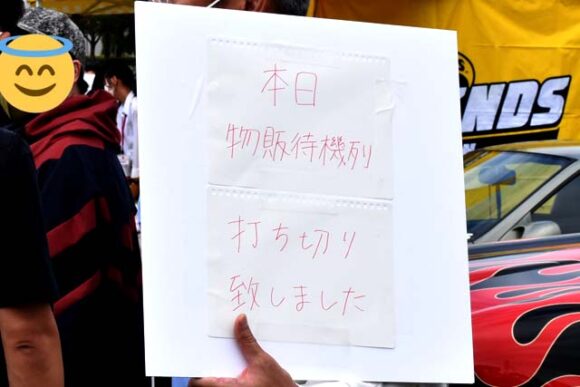 本日
物販待機列
打ち切り
致しました
NDS